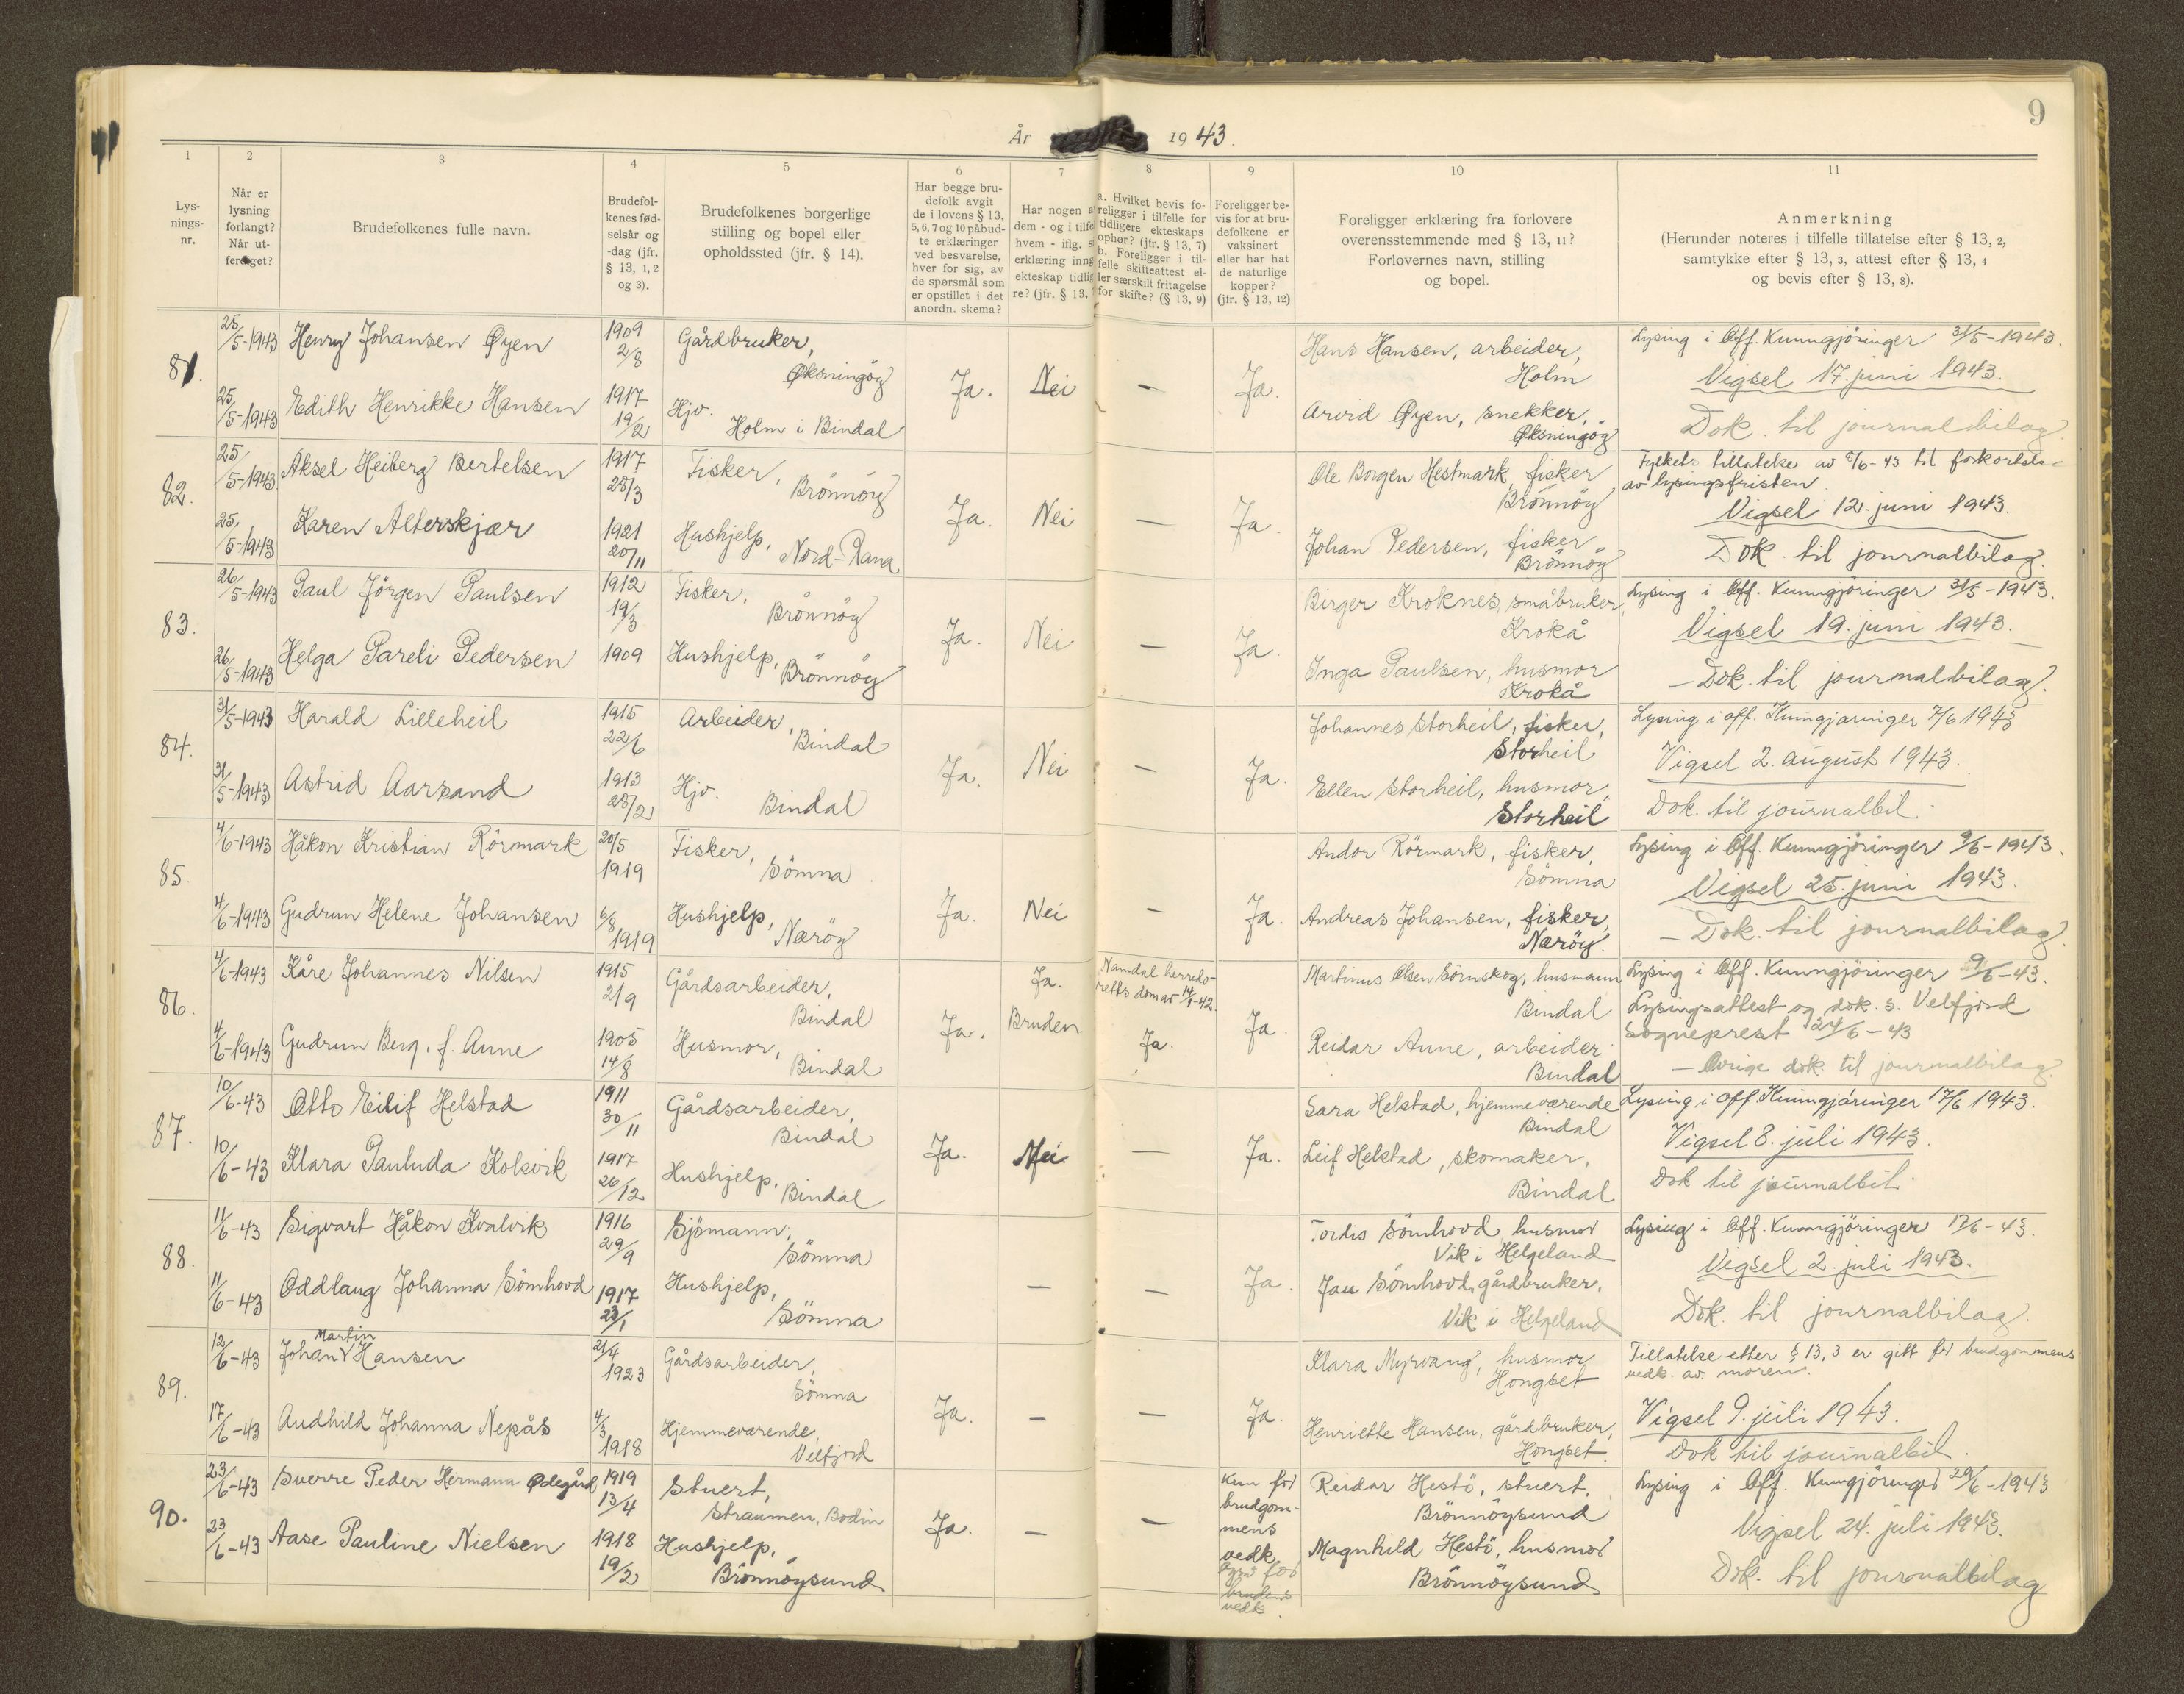 9
År 1943.
1 2 3 4 5 6 7 8 9 10 11
Lys-
nings-
nr.
Når er
lysning
forlangt?
Når ut-
ferdiget?
Brudefolkenes fulle navn.
Brudefol-
kenes fød-
selsår og
-dag (jfr.
§ 13, 1, 2
og 3).
Brudefolkenes borgerlige
stilling og bopel eller
opholdssted (jfr. § 14).
Har begge bru-
defolk avgit
de i lovens § 13,
5, 6, 7 og 10 påbud-
te erklæringer
ved besvarelse,
hver for sig, av
de spørsmål som
er opstillet i det
anordn. skema?
Har nogen a
dem - og i tilfe
hvem - iflg. s
erklæring inng
ekteskap tidlig
re? (jfr. § 13,
a. Hvilket bevis fo-
religger i tilfelle for
tidligere ekteskaps
ophør? (jfr. § 13, 7)
b. Foreligger i til-
felle skifteattest el-
ler særskilt fritagelse
for skifte? (§ 13, 9)
Foreligger be-
vis for at bru-
defolkene er
vaksinert
eller har hat
de naturlige
kopper?
(jfr. § 13, 12)
Foreligger erklæring fra forlovere
overensstemmende med § 13, 11?
Forlovernes navn, stilling
og bopel.
Anmerkning
(Herunder noteres i tilfelle tillatelse efter § 13, 2,
samtykke efter § 13, 3, attest efter § 13, 4
og bevis efter § 13, 8).
81.
25/5-1943 Henry Johansen Øyen
1909
2/8
Gårdbruker,
Øksningøy
25/5-1943 Edith Henrikke Hansen
1917
19/2
Hjv.
Holm i Bindal
Ja. Nei — Ja.
Hans Hansen, arbeider,
Holm
Arvid Øyen, snekker,
Øksningöy
Lysing i Off. Kunngjöringer 31/5-1943.
Vigsel 17. juni 1943.
Dok. til journalbilag
82.
25/5-1943 Aksel Heiberg Bertelsen
1917
28/3
Fisker,
Brönnöy
25/5-1943 Karen Alterskjær
1921
20/11
Hushjelp,
Nord-Rana
Ja. Nei — Ja.
Ole Borgen Hestmark, fisker
Brönnöy
Johan Pedersen, fisker
Brönnöy
Fylkets tillatelse av 8/6-43 til forkortels-
av lysingsfristen.
Vigsel 12. juni 1943.
Dok. til journalbilag.
83.
26/5-1943 Paul Jörgen Paulsen
1912
19/3
Fisker,
Brönnöy
26/5-1943 Helga Pareli Pedersen
1909
Hushjelp,
Brönnöy
Ja. Nei — Ja.
Birger Kroknes, småbruker,
Krokå
Inga Paulsen, husmor
Krokå
Lysing i Off. Kunngjöringer 31/5-1943.
Vigsel 19. juni 1943.
— Dok. til journalbilag.
84.
31/5-1943 Harald Lilleheil
1915
22/6
Arbeider,
Bindal
31/5-1943 Astrid Aarsand
1913
28/2
Hjv.
Bindal
Ja. Nei — Ja.
Johannes Storheil, fisker,
Storheil
Ellen Storheil, husmor,
Storheil
Lysing i off. Kunngjøringer 7/6 1943
Vigsel 2. august 1943.
Dok. til journalbil.
85.
4/6-1943 Håkon Kristian Rörmark
20/5
1919
Fisker,
Sömna
4/6-1943 Gudrun Helene Johansen
6/8
1919
Hushjelp,
Næröy
Ja. Nei — Ja.
Andor Rörmark, fisker,
Sömna
Andreas Johansen, fisker,
Næröy.
Lysing i Off. Kunngjöringer 9/6-1943.
Vigsel 25. juni 1943.
— Dok. til journalbilag
86.
4/6-1943 Kåre Johannes Nilsen
1915
2/9
Gårdsarbeider,
Bindal
4/6-1943 Gudrun Berg, f. Aune
1905
14/8
Husmor,
Bindal
Ja.
Ja.
Bruden
Namdal herreds-
retts dom av 14/1-42.
Ja.
Ja.
Martinus Olsen Sörnskog, husmann
Bindal
Reidar Aune, arbeider
Bindal
Lysing i Off. Kunngjöringer 9/6-43.
Lysingsattest og dok. s. Velfjord
Sogneprest 24/6-43
— Övrige dok. til journalbilag.
87.
10/6-43 Otto Eilif Helstad
1911
30/11
Gårdsarbeider,
Bindal
10/6-43 Klara Pauluda Kolsvik
1917
26/12
Hushjelp,
Bindal
Ja. Nei — Ja.
Sara Helstad, hjemmeværende
Bindal
Leif Helstad, skomaker,
Bindal
Lysing i Off. Kunngjøringer 17/6 1943.
Vigsel 8. juli 1943.
Dok til journalbil.
88.
11/6-43 Sigvart Håkon Kvalvik
1916
29/9
Sjömann,
Sömna
11/6-43 Oddlaug Johanna Sömhovd
1917
23/1
Hushjelp,
Sömna
— — Ja.
Tordis Sömhovd, husmor
Vik i Helgeland
Jau Sömhovd, gårdbruker,
Vik i Helgeland
Lysing i Off. Kunngjöringer 17/6-43.
Vigsel 2. juli 1943.
Dok. til journalbilag.
89.
12/6-43 Johan Martin Hansen
21/4
1923
Gårdsarbeider,
Sömna
17/6-43 Audhild Johanna Nepås
4/3
1918
Hjemmeværende,
Velfjord
Ja. — — Ja.
Klara Myrvang, husmor
Hongset
Henriette Hansen, gårdbruker,
Hongset.
Tillatelse etter § 13,3 er gitt for brudgommens
vedk. av moren.
Vigsel 9. juli 1943.
Dok til journalbil.
90.
23/6-43 Sverre Peder Hermann Ødegård
1919
13/4
Stuert,
Straumen, Bodin
23/6-43 Aase Pauline Nielsen
1918
19/2
Hushjelp,
Brönnöysund
Ja. — —
Kun for
brudgom-
mens
vedk.
Også for
brudens
vedk.
Reidar Hestö, stuert,
Brönnöysund
Magnhild Hestö, husmor
Brönnöysund
Lysing i Off. Kunngjöringer 29/6-1943
Vigsel 24. juli 1943.
Dok. til journalbilag